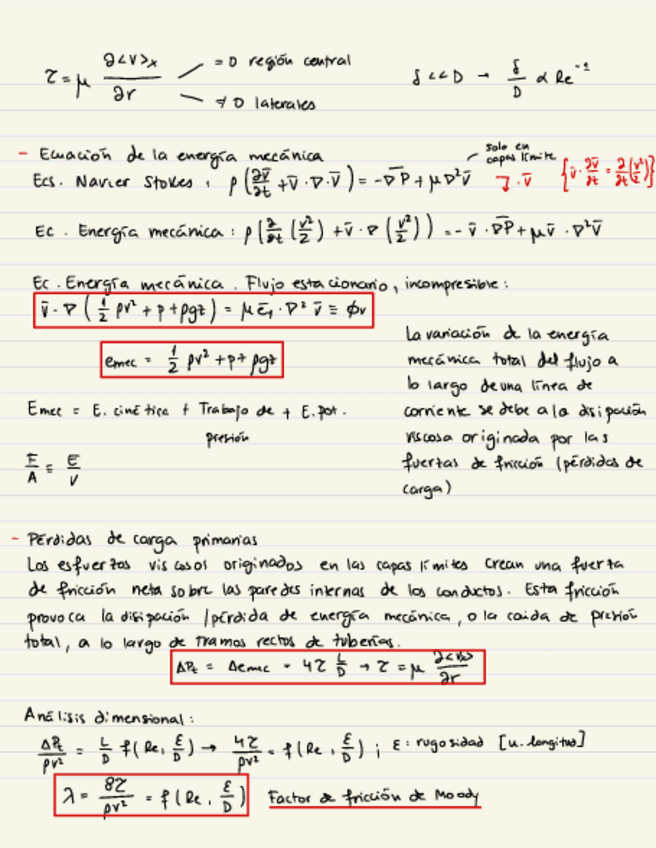 τ = μ ∂<v>x / ∂r = 0 región central
≠ 0 laterales
δ << D → δ/D ∝ Re⁻¹
- Ecuación de la energía mecánica
solo en capas límite
Ecs. Navier Stokes: ρ(∂v̄/∂t + v̄·∇·v̄) = -∇P + μ∇²v̄ ]·v̄ {v̄·∂v̄/∂t = ∂/∂t(v²/2)}
Ec. Energía mecánica: ρ(∂/∂t(v²/2) + v̄·∇(v²/2)) = -v̄·∇P + μv̄·∇²v̄
Ec. Energía mecánica. Flujo estacionario, incompresible:
v̄·∇(1/2 ρv² + p + ρgz) = μ ·∇²v̄ ≡ ϕv
emec = 1/2 ρv² + p + ρgz
Emec = E. cinética + Trabajo de + E.pot.
presión
F/A ≡ E/V
La variación de la energía
mecánica total del flujo a
lo largo de una línea de
corriente se debe a la disipación
viscosa originada por las
fuerzas de fricción (pérdidas de
carga)
- Pérdidas de carga primarias
Los esfuerzos viscosos originados en las capas límites crean una fuerza
de fricción neta sobre las paredes internas de los conductos. Esta fricción
provoca la disipación / pérdida de energía mecánica, o la caida de presión
total, a lo largo de tramos rectos de tuberías.
ΔPt = Δemec = 4τ L/D → τ = μ ∂<v>/∂r
Análisis dimensional:
ΔPt/ρv² = L/D f(Re, ε/D) → 4τ/ρv² = f(Re, ε/D) ; ε: rugosidad [u. longitud]
λ = 8τ/ρv² = f(Re, ε/D) Factor de fricción de Moody